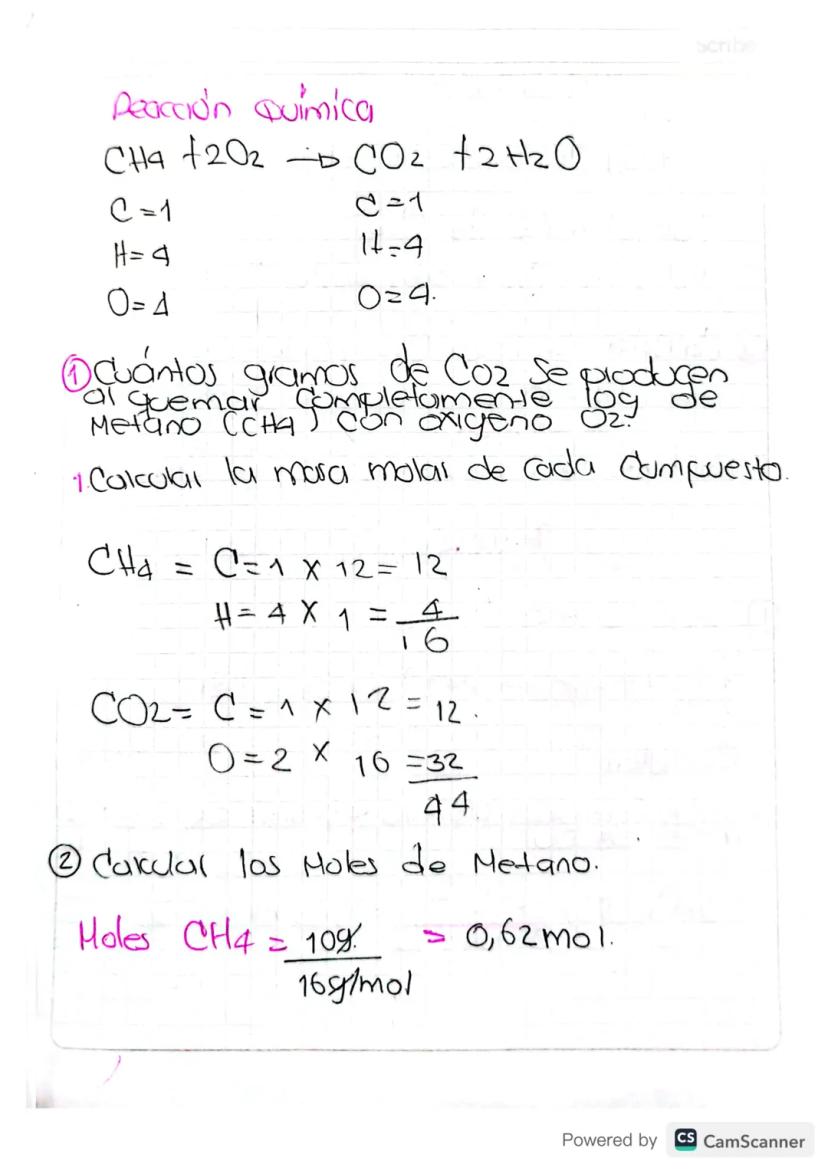 scribe
Reacción Química
CH4 +2O2 → CO2 +2H2O
C=1 C=1
H=4 H=4
O=4 O=4.
① Cuántos gramos de CO2 se producen
al quemar completamente 10g de
Metano (CH4) con oxigeno O2.
1. Calcular la masa molar de cada Compuesto.
CH4 = C=1 X 12= 12
H= 4 X 1 = 4
16
CO2= C=1 X 12 = 12.
O=2 X 16 =32
44
② Calcular los Moles de Metano.
Moles CH4 = 10g = 0,62mol.
16g/mol
Powered by CS CamScanner